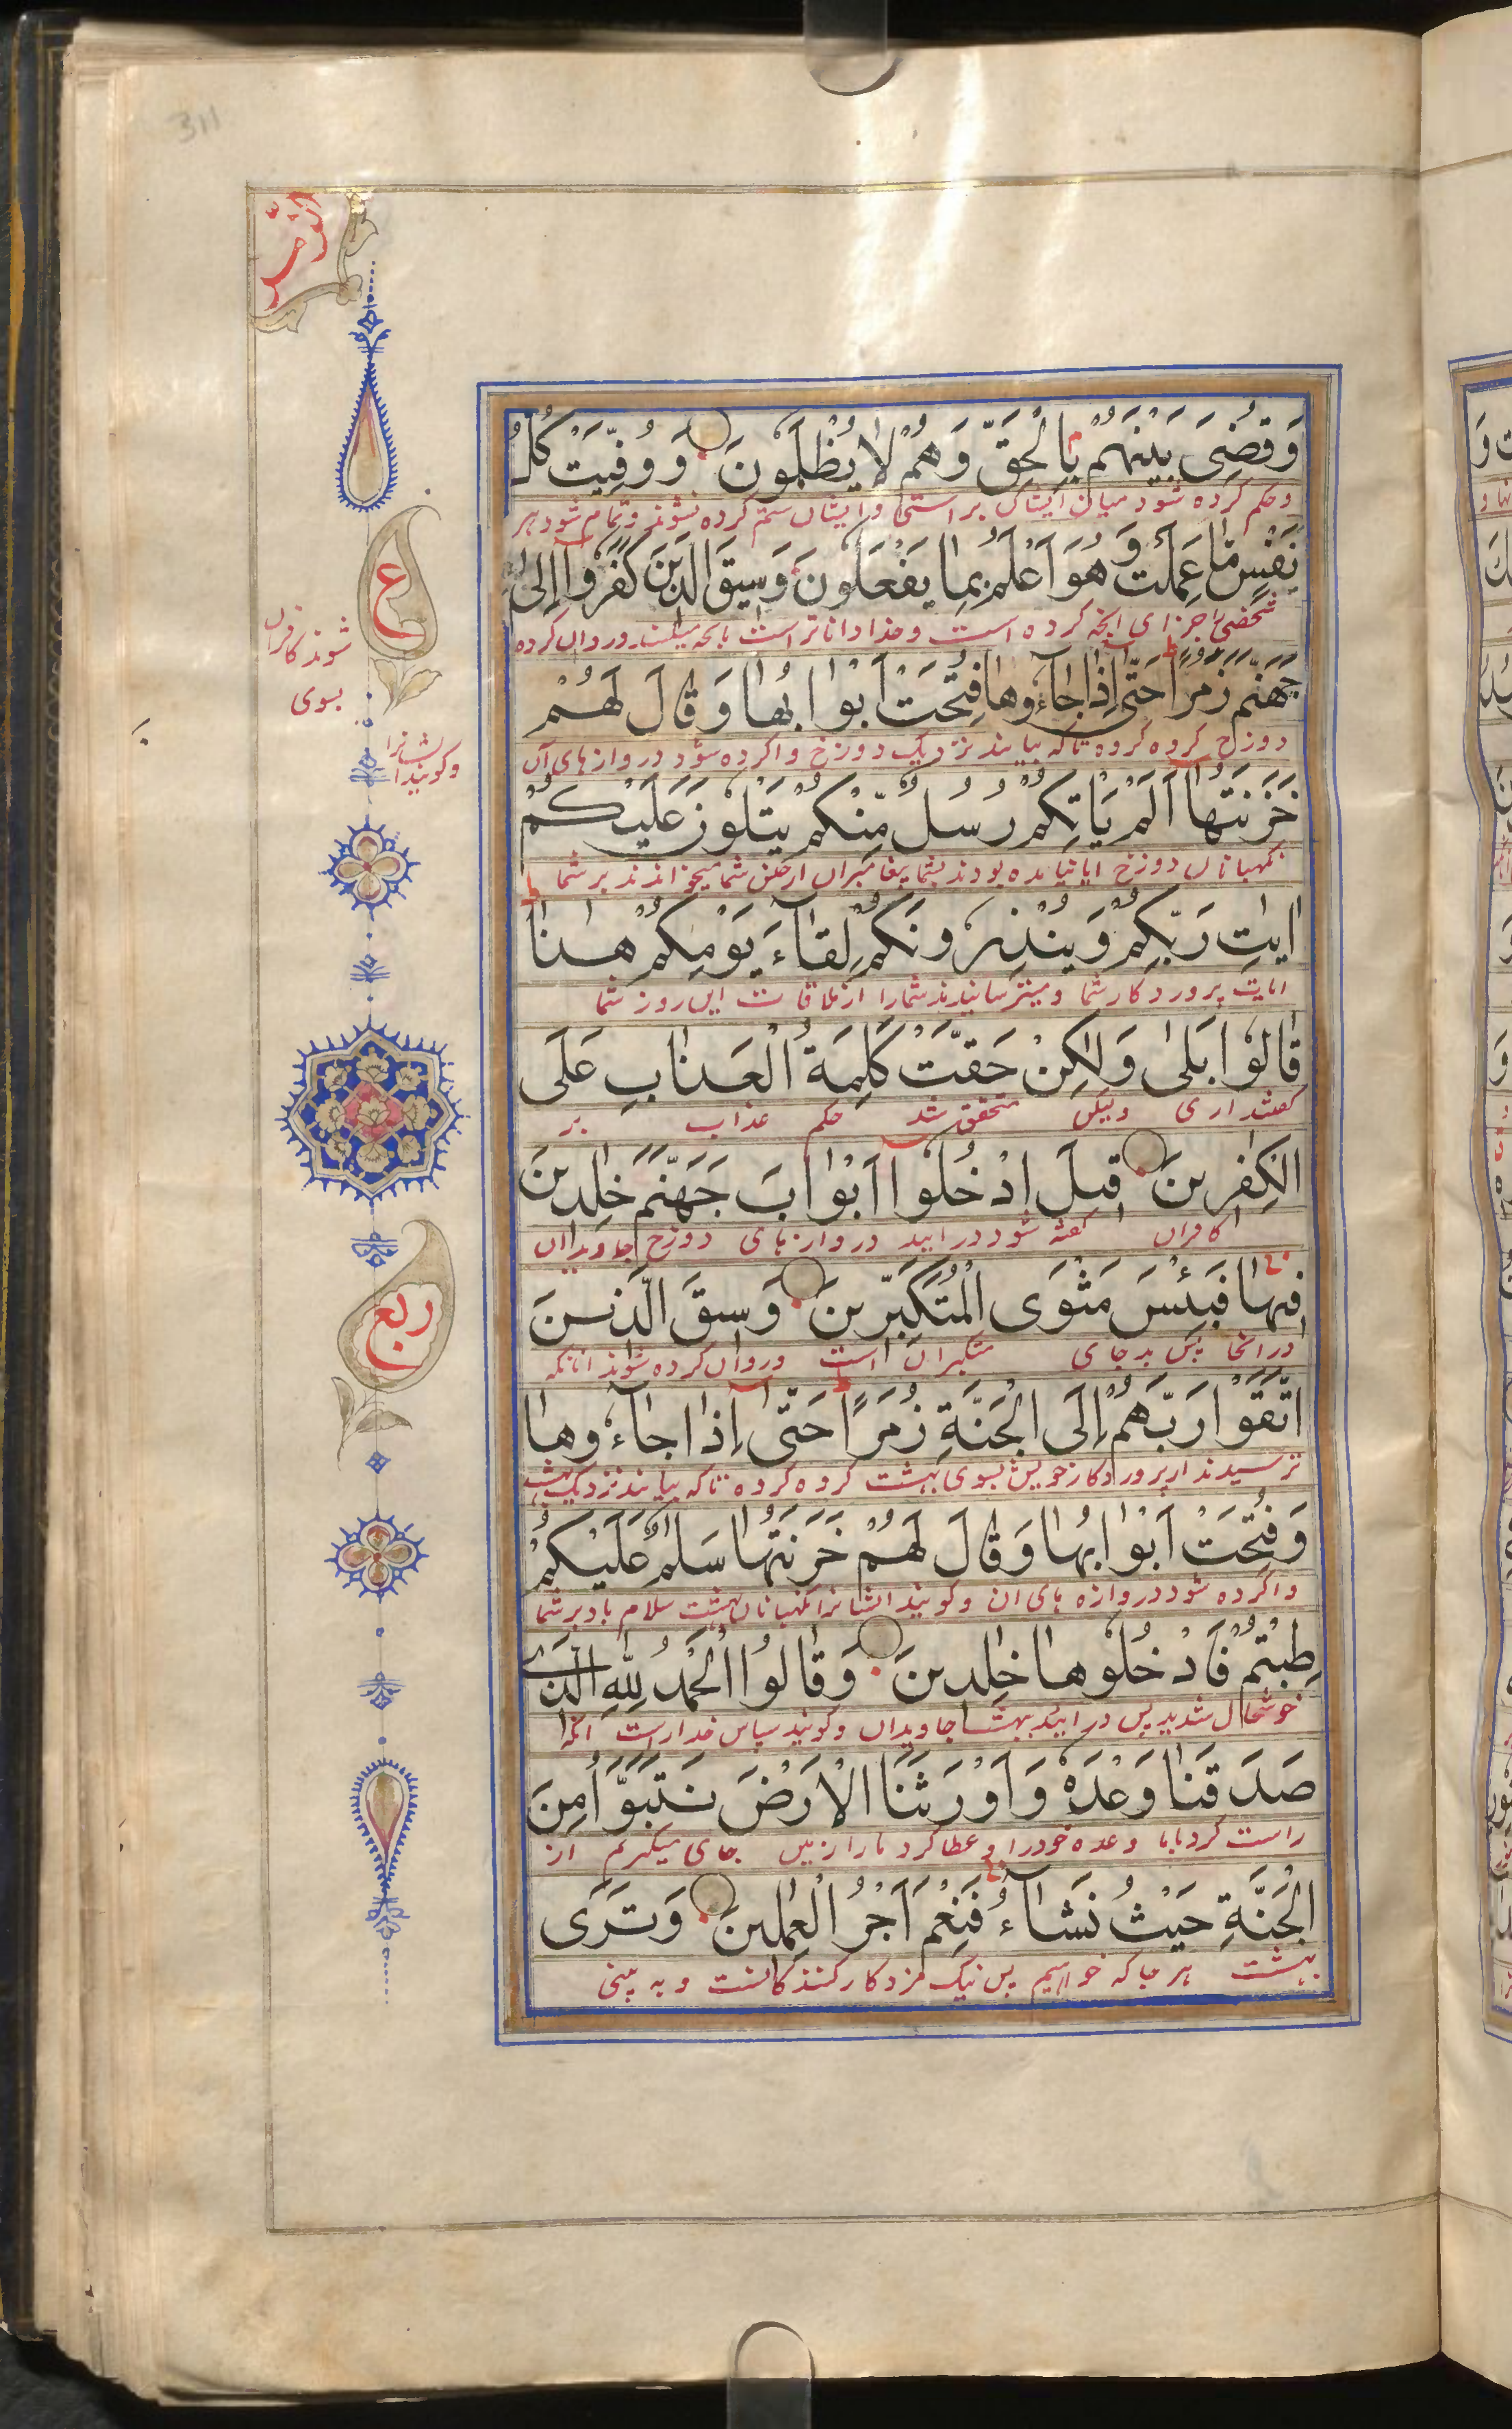 311
الزمر
وَقُضِیَ بَیْنَهُمْ بِالْحَقِّ وَهُمْ لَا یُظْلَمُونَ وَوُفِّیَتْ كُلُّ
وحکم کرده شود میان ایشان براستی و ایشان ستم کرده نشوند و تمام شود هر
نَفْسٍ مَّا عَمِلَتْ وَهُوَ اَعْلَمُ بِمَا یَفْعَلُونَ وَسِیقَ الَّذِینَ كَفَرُوا اِلٰی
شخصی جزای انچه کرده است و خدا داناتر است بانچه میکنند و روان کرده
شوند کافران
بسوی
جَهَنَّمَ زُمَرًا حَتّٰی اِذَا جَآءُوهَا فُتِحَتْ اَبْوَابُهَا وَقَالَ لَهُمْ
دوزخ گروه گروه تا که بیایند نزدیک دوزخ واکرده شود دروازهای آن
وگویند ایشانرا
خَزَنَتُهَا اَلَمْ یَاْتِكُمْ رُسُلٌ مِّنْكُمْ یَتْلُوْنَ عَلَیْكُمْ
نگهبانان دوزخ ایا نیامده بودند بشما پیغامبران ازجنس شما میخواندند بر شما
اٰیٰتِ رَبِّكُمْ وَیُنْذِرُونَكُمْ لِقَآءَ یَوْمِكُمْ هٰذَا
ایات پروردکار شما و میترسانیدند شمارا از ملاقات این روز شما
قَالُوْا بَلٰی وَلٰكِنْ حَقَّتْ كَلِمَةُ الْعَذَابِ عَلَی
گفتند اری ولیکن متحقق شد حکم عذاب بر
الْكٰفِرِینَ قِیلَ ادْخُلُوْا اَبْوَابَ جَهَنَّمَ خٰلِدِینَ
کافران گفته شود درایید دروازهای دوزخ جاویدان
فِیْهَا فَبِئْسَ مَثْوَی الْمُتَكَبِّرِینَ وَسِیقَ الَّذِینَ
درانجا پس بد جای متکبران است وروان کرده شوند انانکه
اتَّقَوْا رَبَّهُمْ اِلَی الْجَنَّةِ زُمَرًا حَتّٰی اِذَا جَآءُوهَا
ترسیدند از پروردکار خویش بسوی بهشت گروه گروه تا که بیایند نزدیک بهشت
وَفُتِحَتْ اَبْوَابُهَا وَقَالَ لَهُمْ خَزَنَتُهَا سَلٰمٌ عَلَیْكُمْ
واکرده شود دروازه های ان وگویند ایشانرا نگهبانان بهشت سلام باد بر شما
طِبْتُمْ فَادْخُلُوهَا خٰلِدِینَ وَقَالُوا الْحَمْدُ لِلّٰهِ الَّذِی
خوشحال شدید پس درایید بهشت جاویدان وگویند سپاس خداراست انکه
صَدَقَنَا وَعْدَهٗ وَاَوْرَثَنَا الْاَرْضَ نَتَبَوَّاُ مِنَ
راست کرد باما وعده خودرا و عطا کرد مارا زمین جای میگیریم از
الْجَنَّةِ حَیْثُ نَشَآءُ فَنِعْمَ اَجْرُ الْعٰمِلِینَ وَتَرَی
بهشت هر جا که خواهیم پس نیک مزد کارکنندکانست و به بینی
ع
ربع